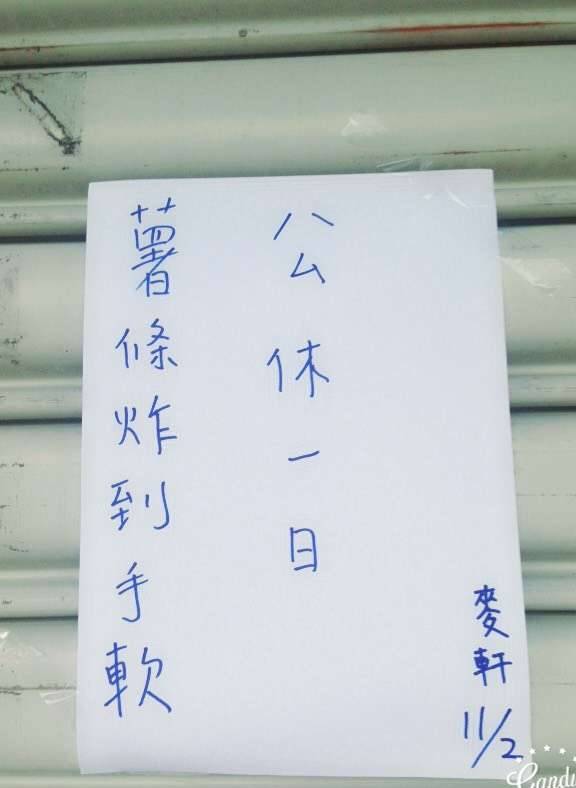 麥軒
11/2
公休一日
薯條炸到手軟